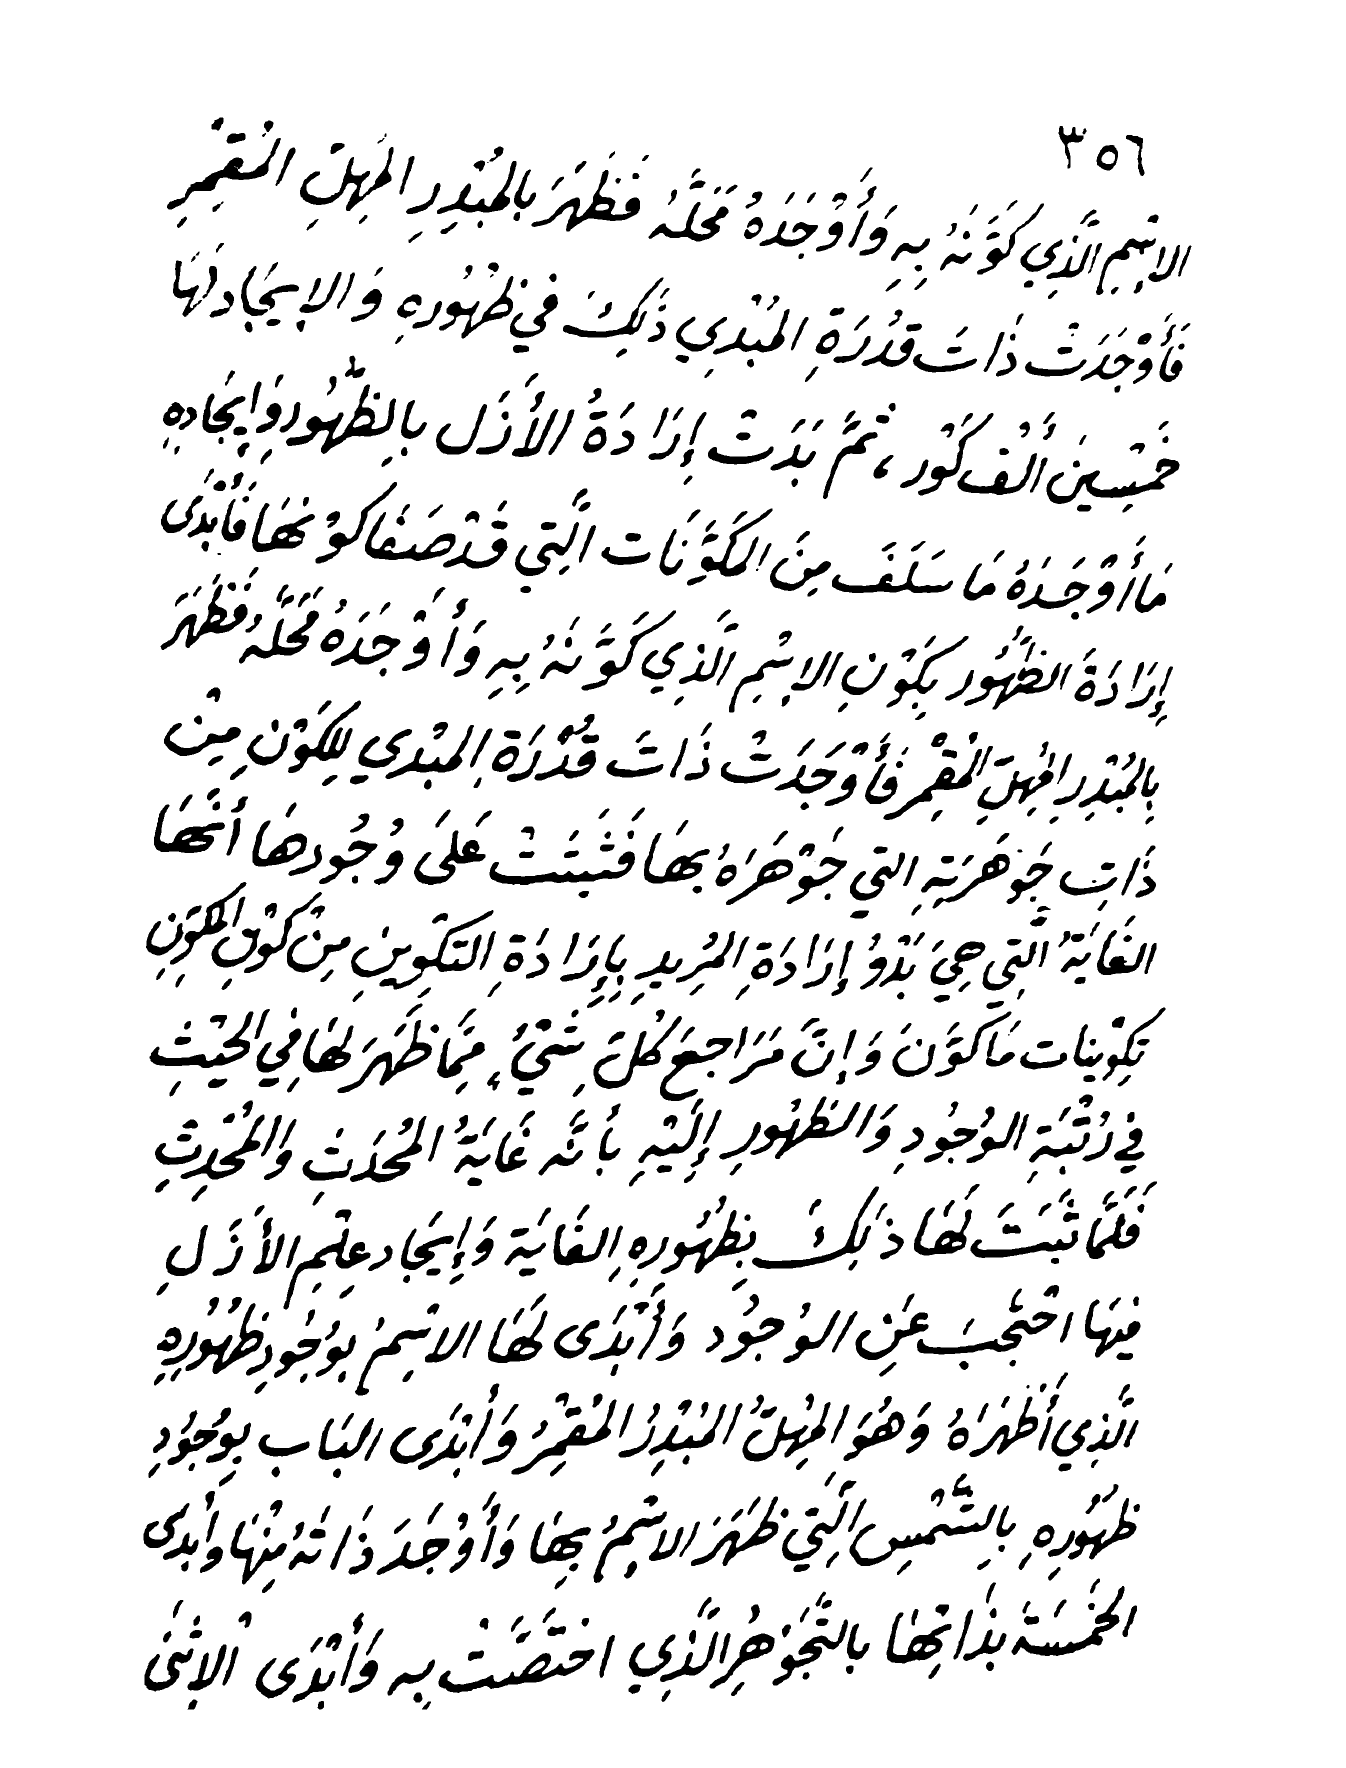 ٣٥٦
الاِسْمِ الَّذِي كَوَّنَهُ بِهِ وَأَوْجَدَهُ مَحَلَّهُ فَظَهَرَ بِالمُبْدِرِ المُهِلِّ المُقْمِرِ
فَأَوْجَدَتْ ذَاتَ قُدْرَةِ المُبْدِي ذَلِكَ في ظُهُورِهِ وَالإِيجَادِ لَهَا
خَمْسِينَ أَلْف كَوْر، ثُمَّ بَدَتْ إِرَادَةُ الأَزَل بِالظُّهُورِ وَإِيجَادِهِ
مَا أَوْجَدَهُ مَا سَلَفَ مِنَ المُكَوَّنَات الَّتِي قَدْ صَفَا كَوْنهَا فَأَبْدَى
إِرَادَةَ الظُّهُور بِكَوْنِ الاِسْمِ الَّذِي كَوَّنَهُ بِهِ وَأَوْجَدَهُ مَحَلَّهُ فَظَهَرَ
بِالمُبْدِرِ المُهِلّ المُقْمِر فَأَوْجَدَتْ ذَاتَ قُدْرَة المبْدي للِكَوْنِ مِنْ
ذَاتِ جَوْهَرَيّةِ التي جَوْهَرَهُ بهَا فَثَبَتَتْ عَلَى وُجُودهَا أَنَّهَا
الغَايَةُ الَّتِي هِيَ بَدْوُ إِرَادَةِ المُرِيدِ بِإِرَادَةِ التَكْوِينِ مِنْ كَوْنِ المُكَوِّنِ
تَكْوِينات مَا كَوَّنَ وَإِنَّ مَرَاجعَ كُلِّ شَيْءٍ مِمَّا ظَهَرَ لهَا فِي الحَيْثِ
في رُتْبَةِ الوُجُودِ وَالظهُورِ إِلَيْهِ بأَنَّه غَايَةُ المُحْدَثِ وَالمُحْدِثِ
فَلَمَّا ثَبَتَ لَهَا ذَلِكَ بِظُهُورِهِ الغَايَة وَإِيجَاد عِلْمِ الأَزَلِ
فيهَا احْتَجَبَ عَنِ الوُجُود وَأَبْدَى لَهَا الاسْمُ بِوُجُودِ ظُهُورِهِ
الَّذِي أَظْهَرَهُ وَهُوَ المُهِلُّ المُبْدِرُ المُقْمِرُ وَأَبْدَى البَاب بِوُجُودِ
ظهُورِهِ بِالشَّمْسِ الَّتِي ظَهَرَ الاسْمُ بِهَا وَأَوْجَدَ ذَاتهُ مِنْهَا وأَبْدى
الخَمْسَة بذَاتِهَا بالتَّجَوْهِر الَّذِي اختَصَّتْ بِه وَأَبْدَى الاِثْنَى